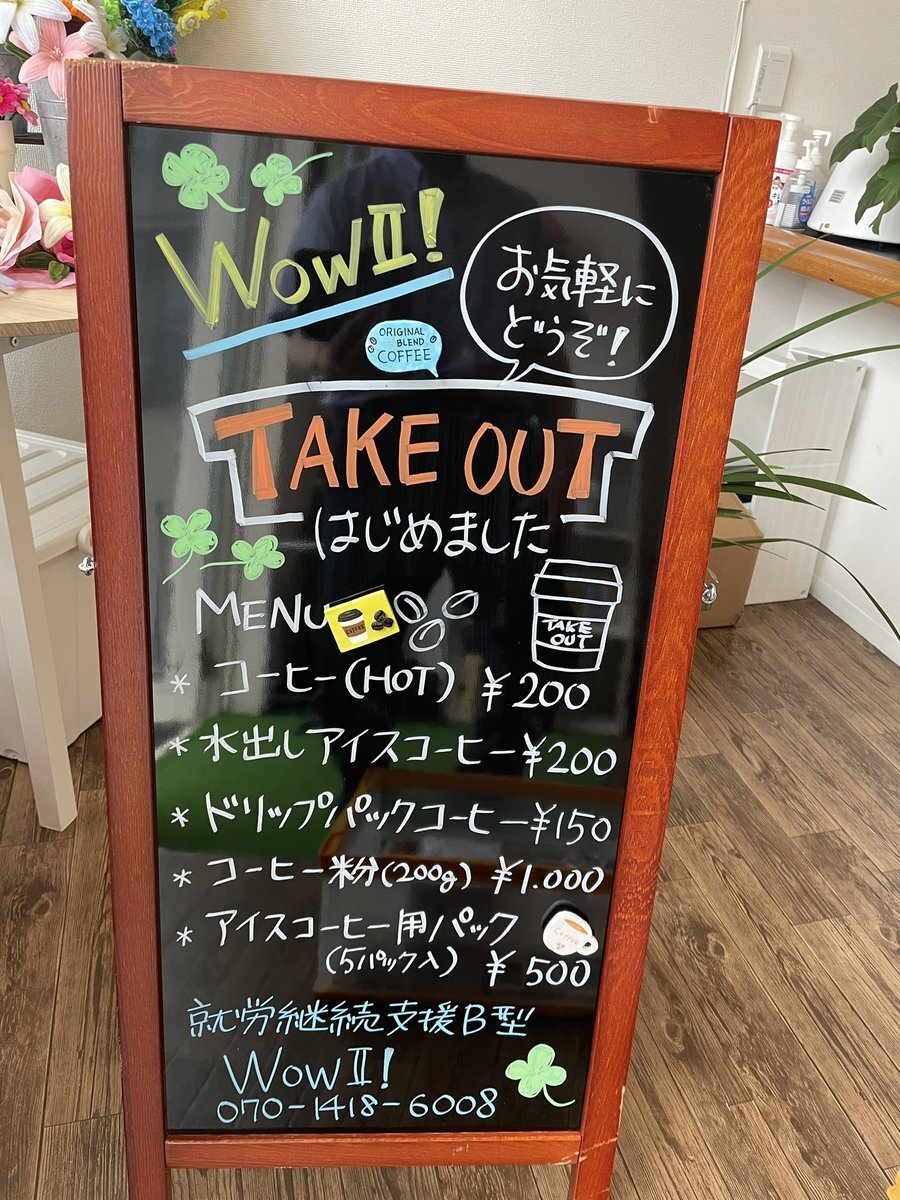 WOWⅡ!
お気軽に
どうぞ!
ORIGINAL
BLEND
COFFEE
TAKE OUT
はじめました
MENU
COFFEE
TAKE
OUT
* コーヒー(HOT) ¥200
* 水出しアイスコーヒー ¥200
* ドリップパックコーヒー ¥150
* コーヒー粉(200g) ¥1.000
* アイスコーヒー用パック
Coffee
(5パック入) ¥500
就労継続支援B型
WOWⅡ!
070-1418-6008